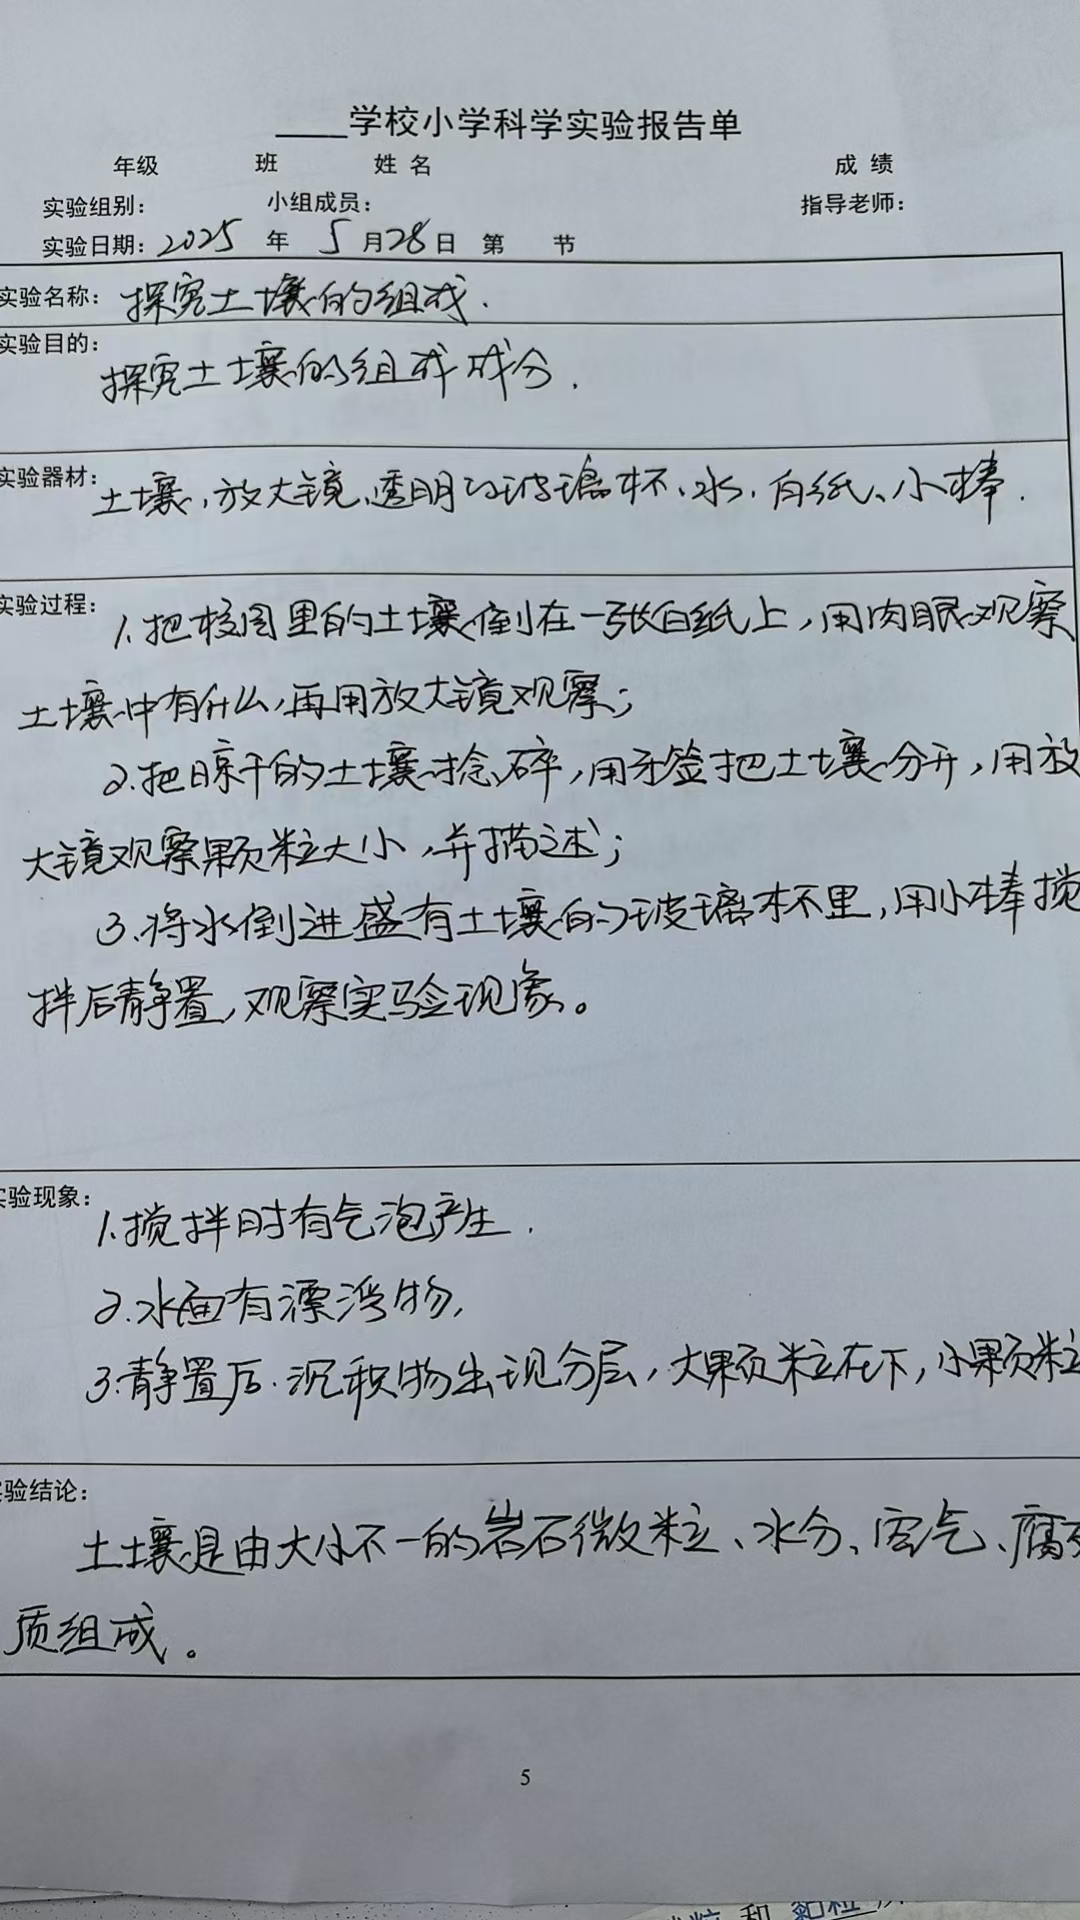 ____学校小学科学实验报告单
年级 班 姓名 成绩
实验组别: 小组成员: 指导老师:
实验日期: 2025 年 5 月28日 第 节
实验名称: 探究土壤的组成.
实验目的:
探究土壤的组成成分.
实验器材: 土壤,放大镜,透明的玻璃杯、水、白纸、小棒.
实验过程: 1.把校园里的土壤倒在一张白纸上,用肉眼观察
土壤中有什么,再用放大镜观察;
2.把晾干的土壤捻碎,用牙签把土壤分开,用放
大镜观察颗粒大小,并描述;
3.将水倒进盛有土壤的玻璃杯里,用小棒搅
拌后静置,观察实验现象。
实验现象: 1.搅拌时有气泡产生.
2.水面有漂浮物,
3.静置后.沉积物出现分层,大颗粒在下,小颗粒
实验结论:
土壤是由大小不一的岩石微粒、水分、空气、腐
质组成。
5
和 黏粒